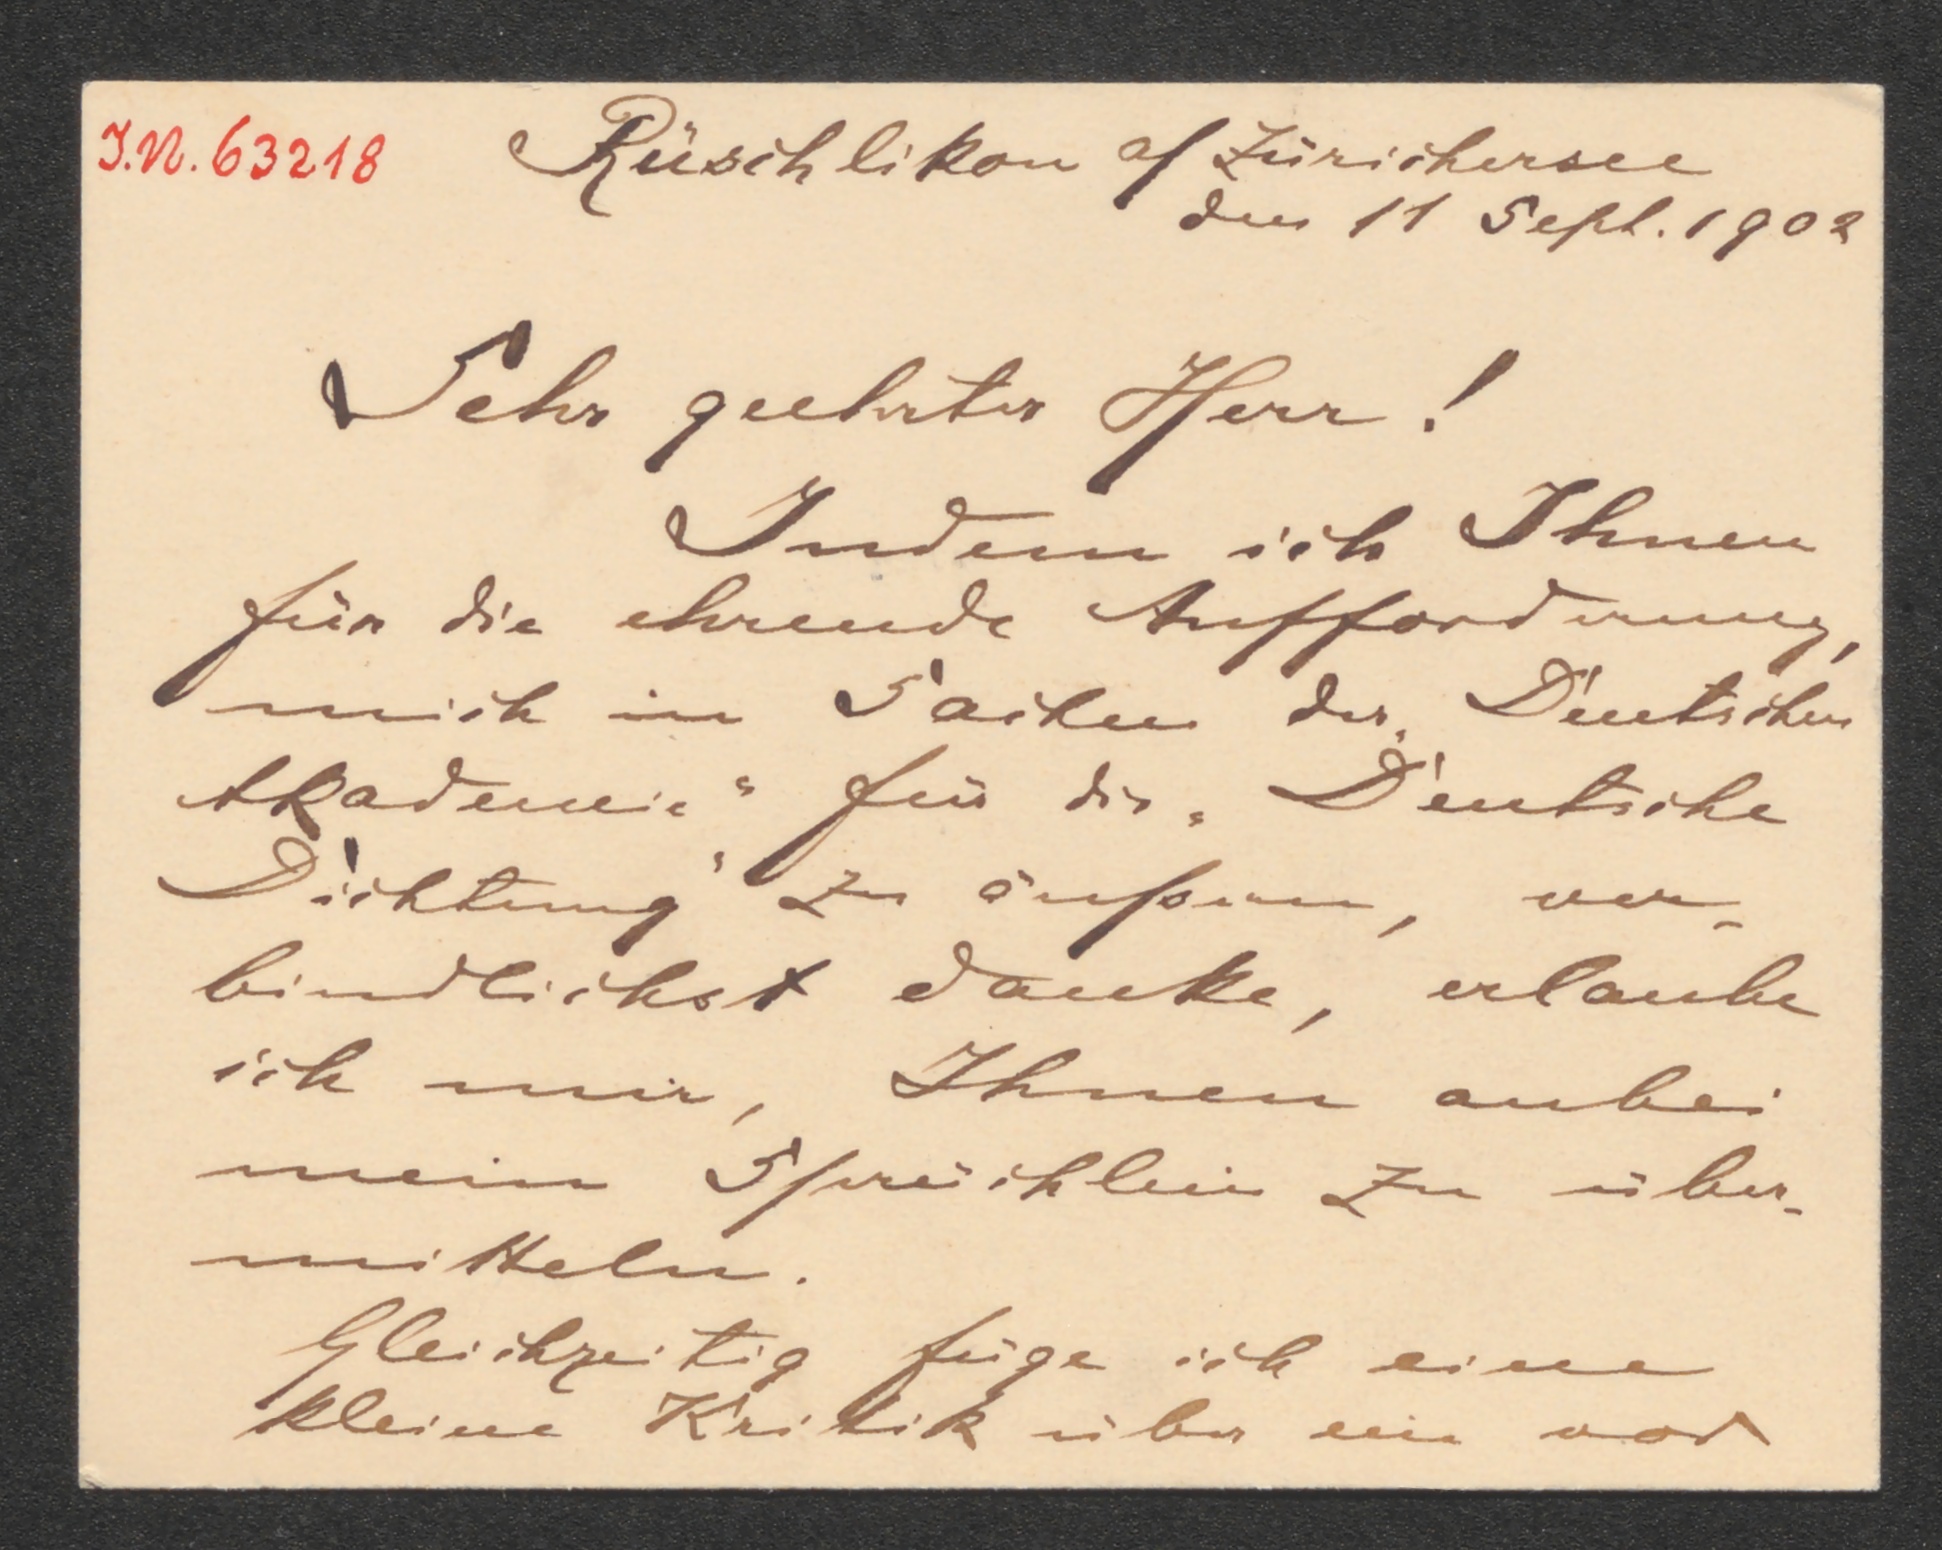 J.N. 63218
Rüschlikon a/ Zürichersee
den 11 Sept. 1902
Sehr geehrter Herr!
Indem ich Ihnen
für die ehrende Aufforderung,
mich in Sachen der „Deutschen
Akademie“ für die „Deutsche
Dichtung“ zu äußern, ver-
bindlichst danke, erlaube
ich mir, Ihnen anbei
mein Sprüchlein zu über-
mitteln.
Gleichzeitig füge ich eine
kleine Kritik über ein vor